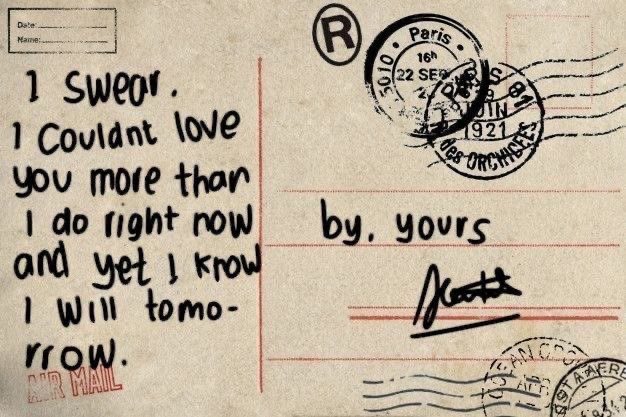 Date:
Name:
R
Paris
16h
22 SEP
5010
JUIN
1921
des ORCHIDEES
I swear.
I Couldnt love
you more than
I do right now
and yet I know
I will tomo-
rrow.
AIR MAIL
by, yours